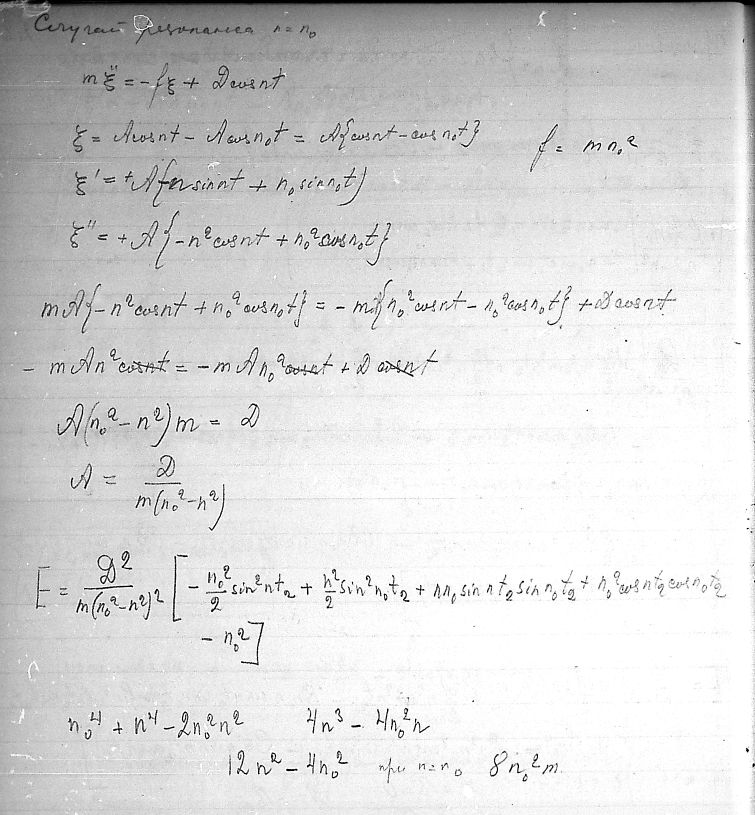 Случай резонанса n=n₀
mξ̈ = -fξ + D cos nt
ξ = A cos nt - A cos n₀t = A{cos nt - cos n₀t}   f = mn₀²
ξ' = +A{-n sin nt + n₀ sin n₀t}
ξ'' = +A{-n² cos nt + n₀² cos n₀t}
mA{-n² cos nt + n₀² cos n₀t} = -mA{n₀² cos nt - n₀² cos n₀t} + D cos nt
- mAn² cos nt = -mAn₀² cos nt + D cos nt
A(n₀² - n²)m = D
A = D / m(n₀² - n²)
E = D² / m(n₀² - n²)² [ - n₀²/2 sin² nt₂ + n²/2 sin² n₀t₂ + nn₀ sin nt₂ sin n₀t₂ + n₀² cos nt₂ cos n₀t₂
- n₀² ]
n₀⁴ + n⁴ - 2n₀²n²   4n³ - 4n₀²n
12n² - 4n₀²   при n=n₀   8n₀²m.